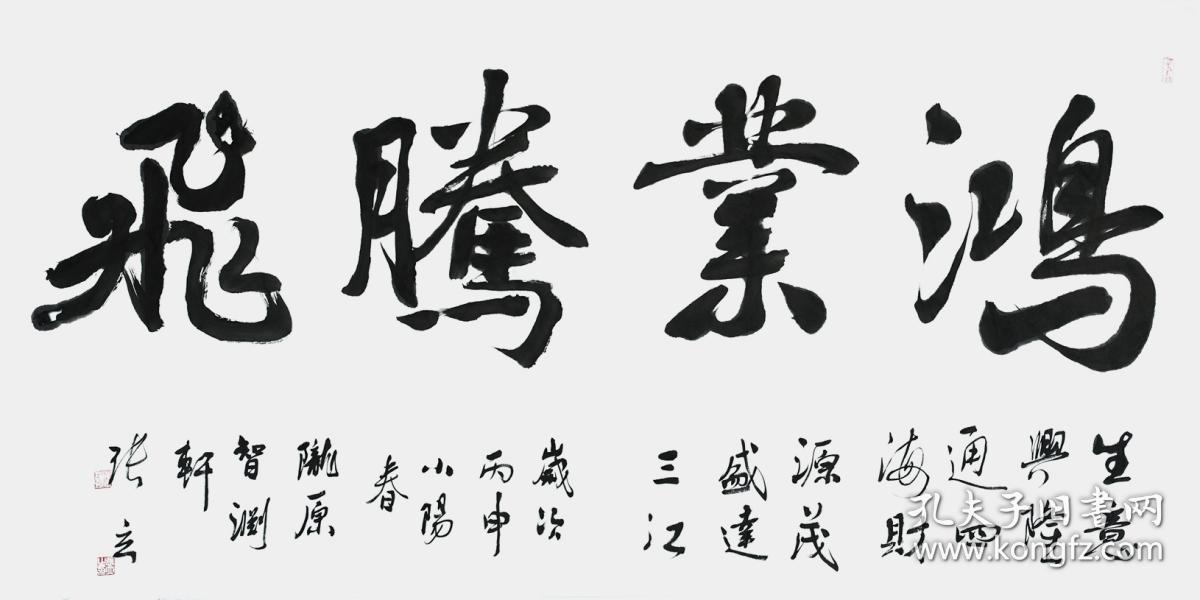 鴻業騰飛
生意
興隆
通四
海財
源茂
盛達
三江
歲次
丙申
小陽
春
隴原
智淵
軒
张云
孔夫子旧書网
www.kongfz.com